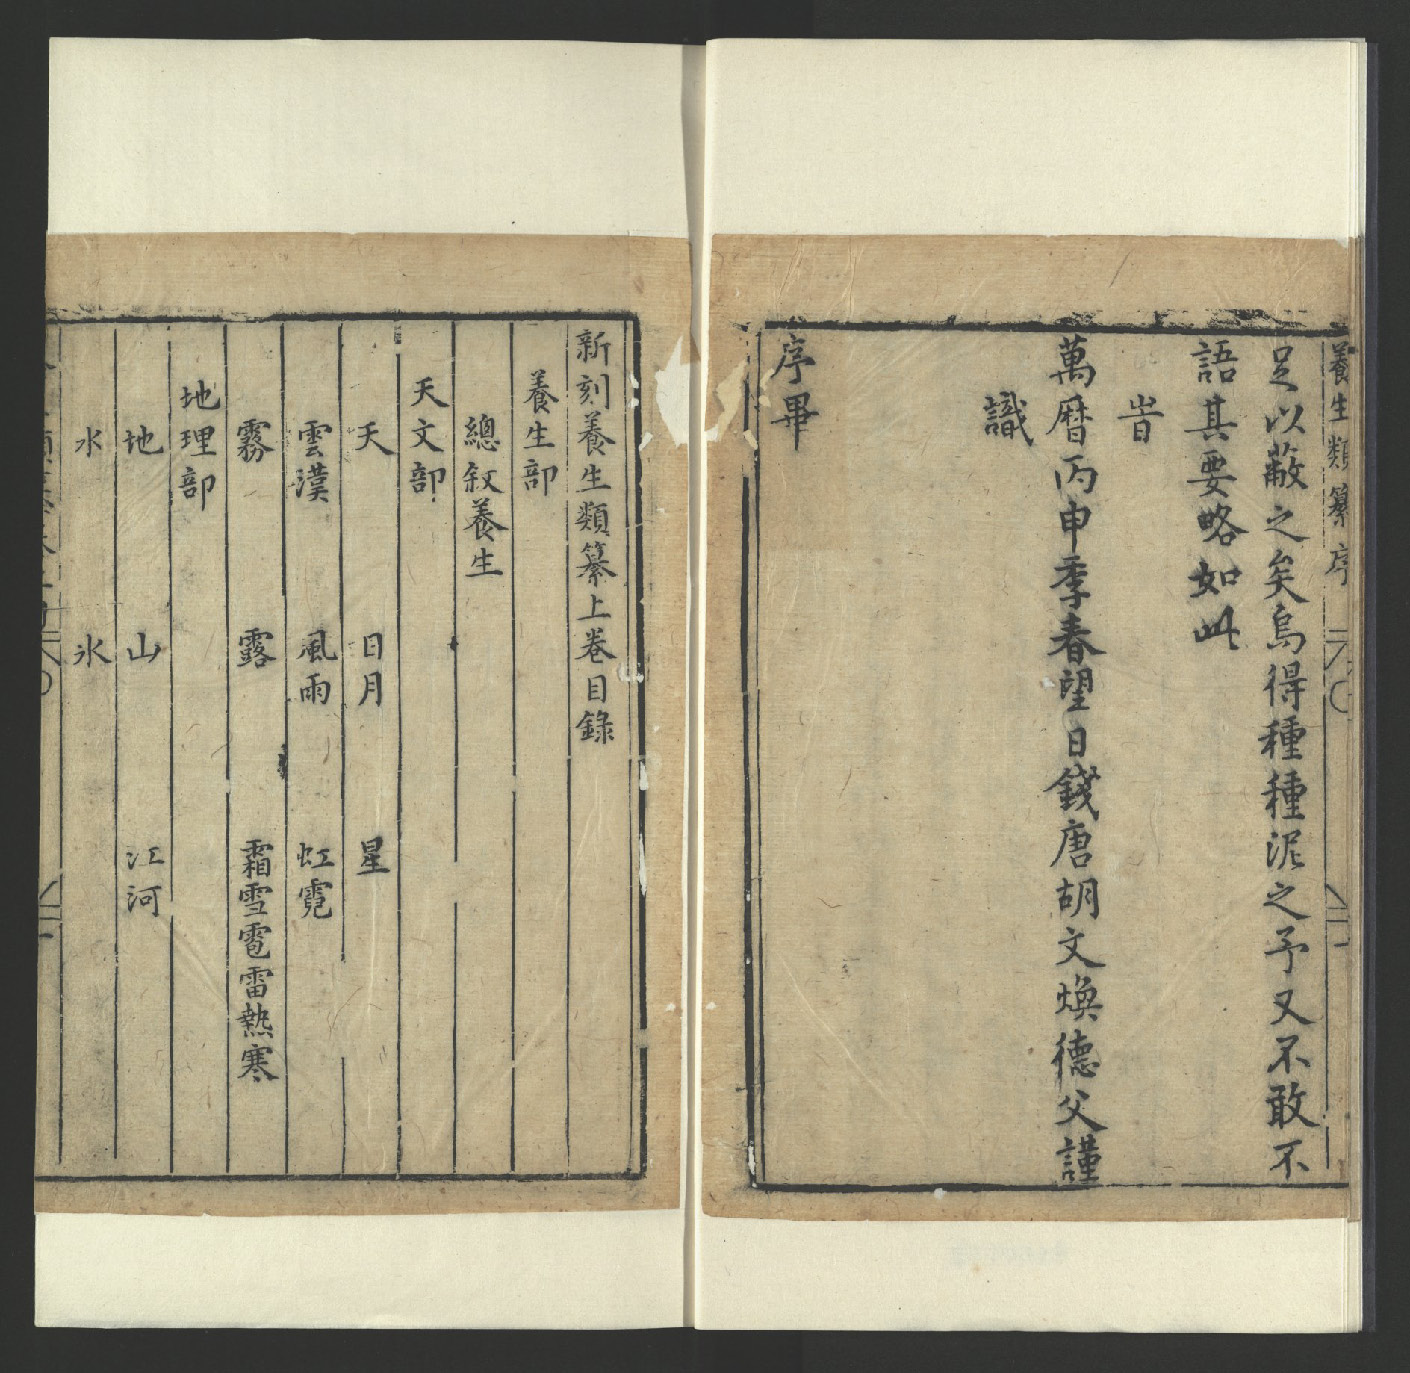 養生類纂序
足以蔽之矣烏得種種泥之予又不敢不
語其要略如此
旹
萬曆丙申季春望日錢唐胡文煥德父謹
識
序畢
新刻養生類纂上卷目錄
養生部
總叙養生
天文部
天 日月 星
雲漢 風雨 虹霓
霧 露 霜雪雹雷熱寒
地理部
地 山 江河
水 氷